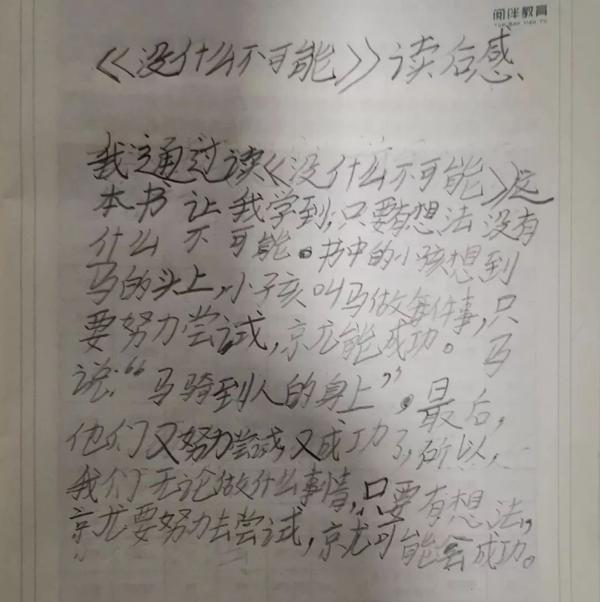 阅伴教育
《没什么不可能》读后感
我通过读《没什么不可能》这
本书让我学到,只要有想法没有
什么不可能。书中的小孩想到
马的头上,小孩叫马做每件事,只
要努力尝试,就能成功。马
说:“马骑到人的身上”。最后,
他们又努力尝试又成功了,所以,
我们无论做什么事情,只要有想法,
就要努力去尝试,就可能会成功。